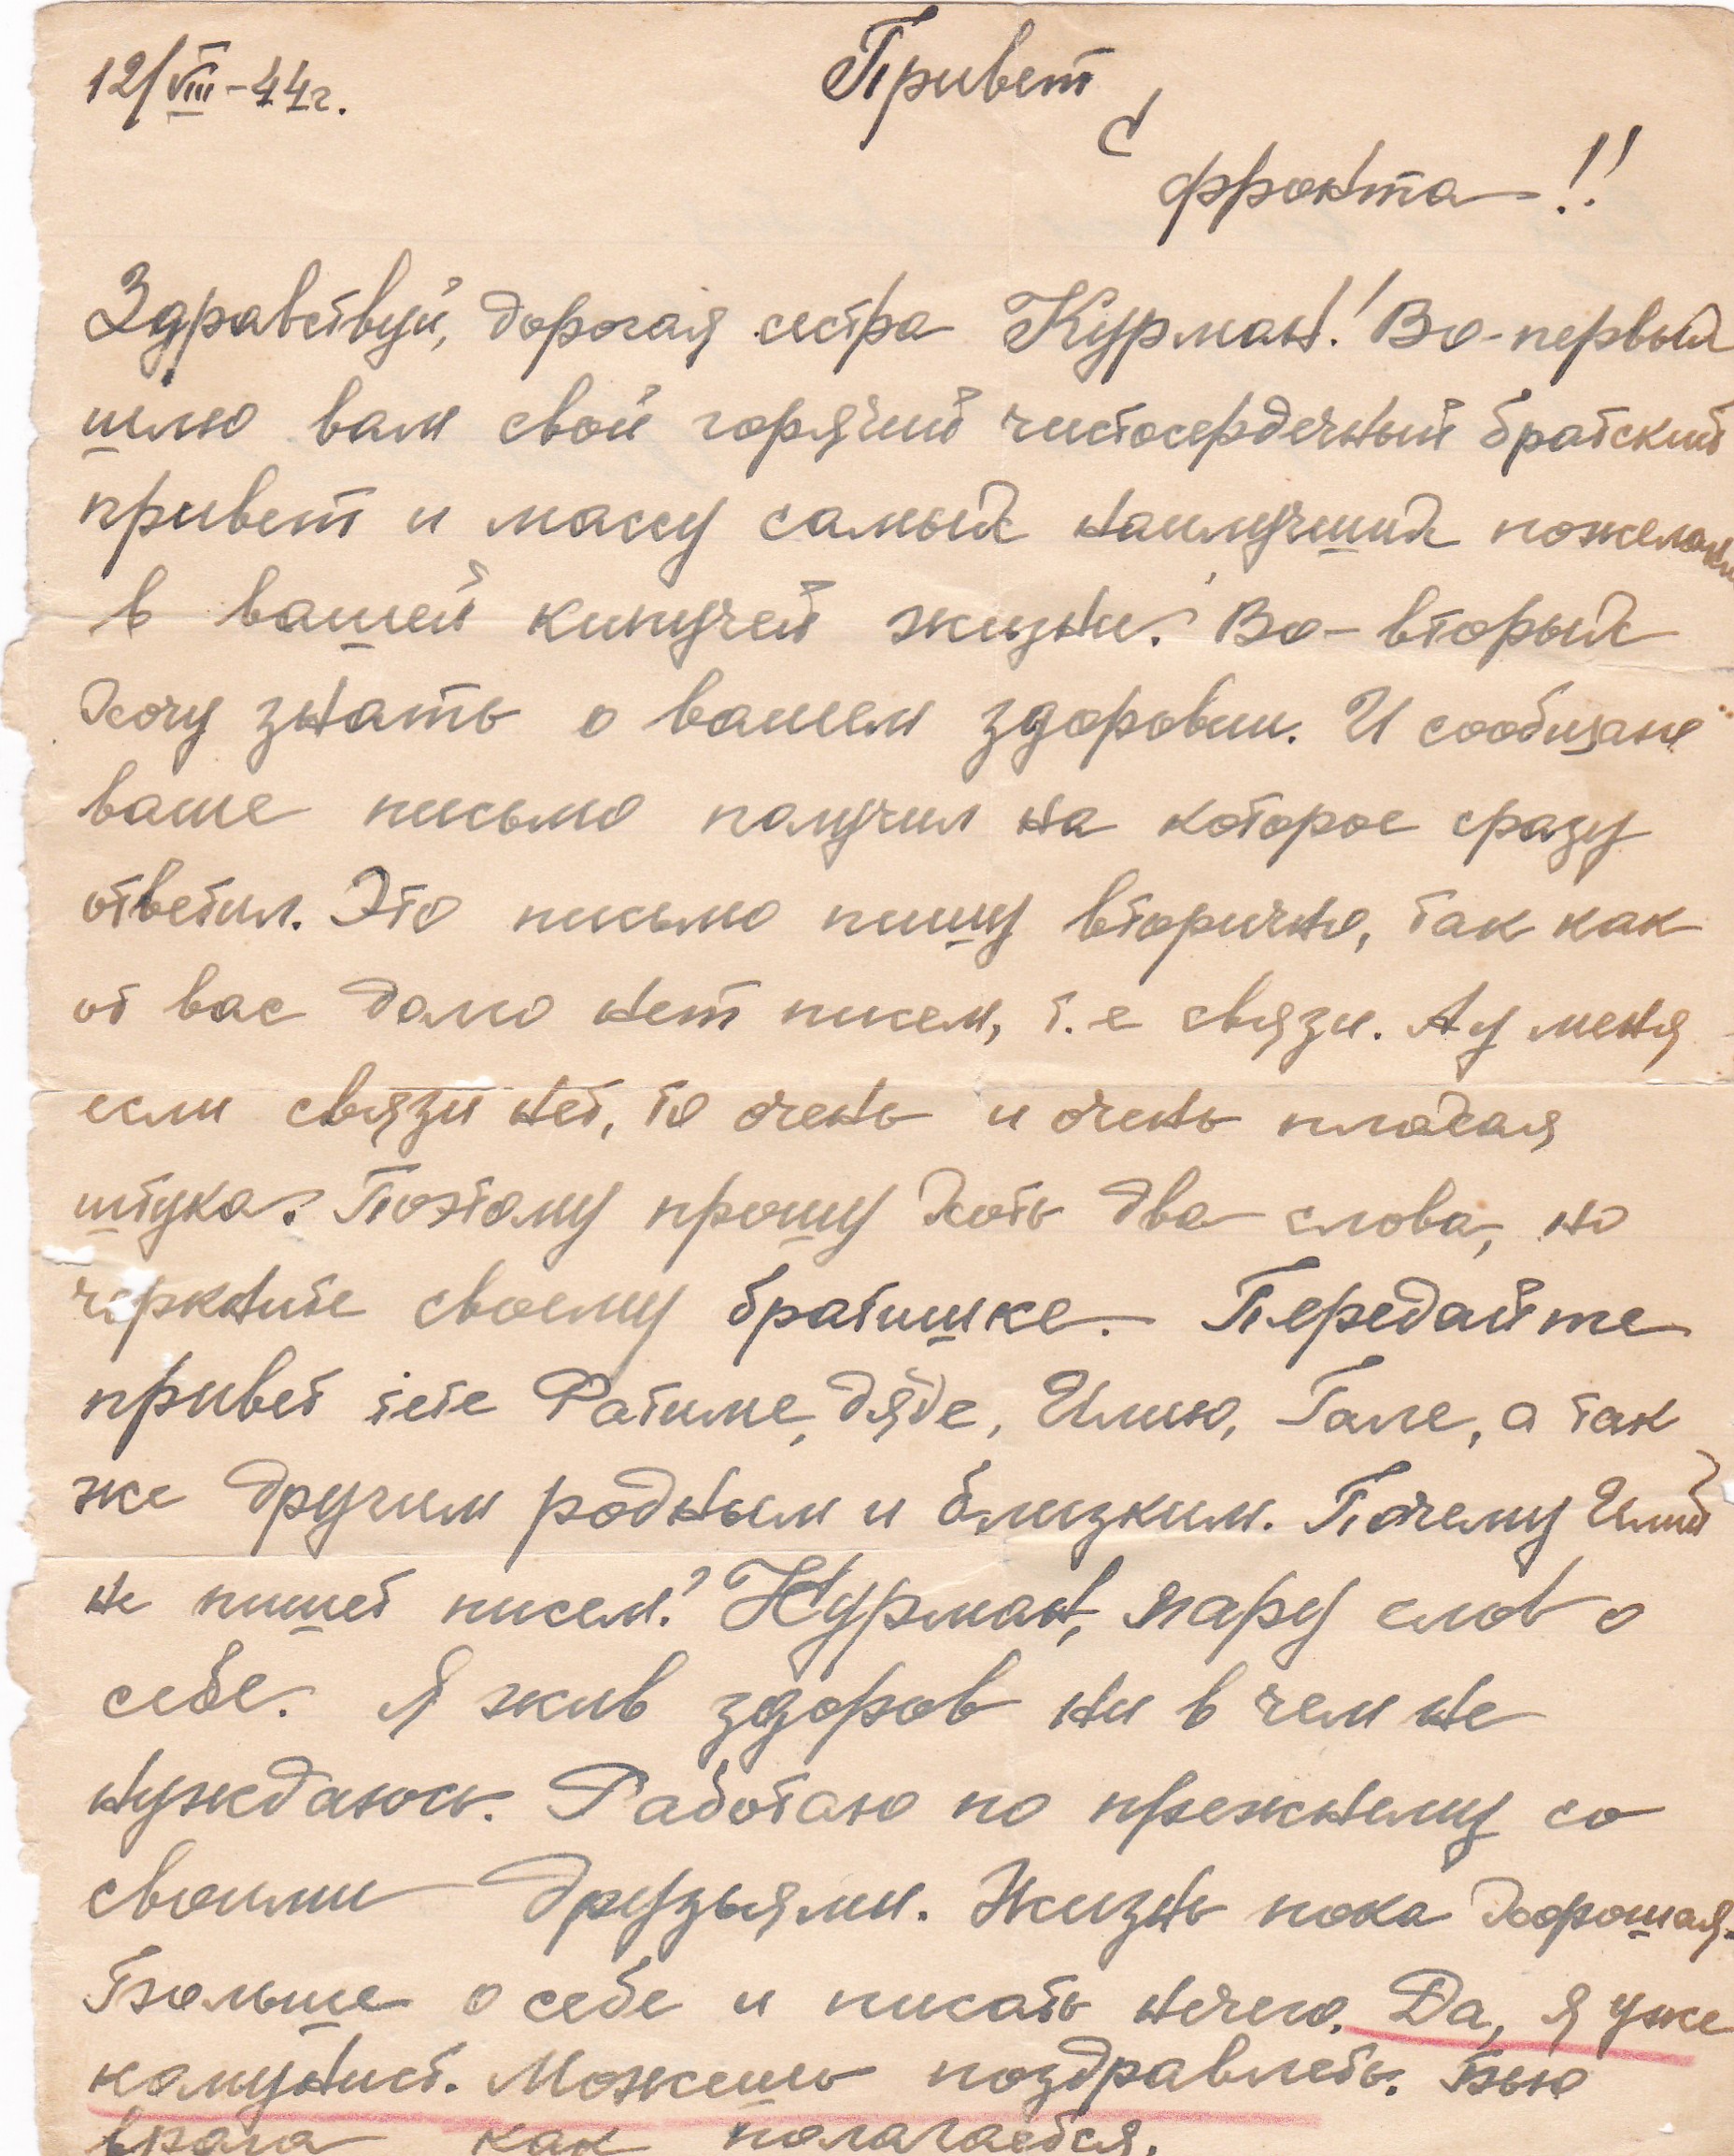 12/VIII-44г.
Привет
с
фронта!!
Здравствуй, дорогая сестра Курман! Во-первых
шлю вам свой горячий чистосердечный братский
привет и массу самых наилучших пожелани
в вашей кипучей жизни! Во-вторых
хочу знать о вашем здоровии. И сообщаю
ваше письмо получил на которое сразу
ответил. Это письмо пишу вторично, так как
от вас долго нет писем, т.е связи. А у меня
если связи нет, то очень и очень плохая
штука. Поэтому прошу хоть два слова, но
черкните своему братишке. Передайте
привет тете Фатиме, дяде, Илию, Гале, а так
же другим родным и близким. Почему Илий
не пишет писем? Курман, пару слов о
себе. Я жив здоров ни в чем не
нуждаюсь. Работаю по прежнему со
своими друзьями. Жизнь пока хорошая.
Больше о себе и писать нечего. Да, я уже
комунист. Можешь поздравлеть. Бью
врага как полагается.